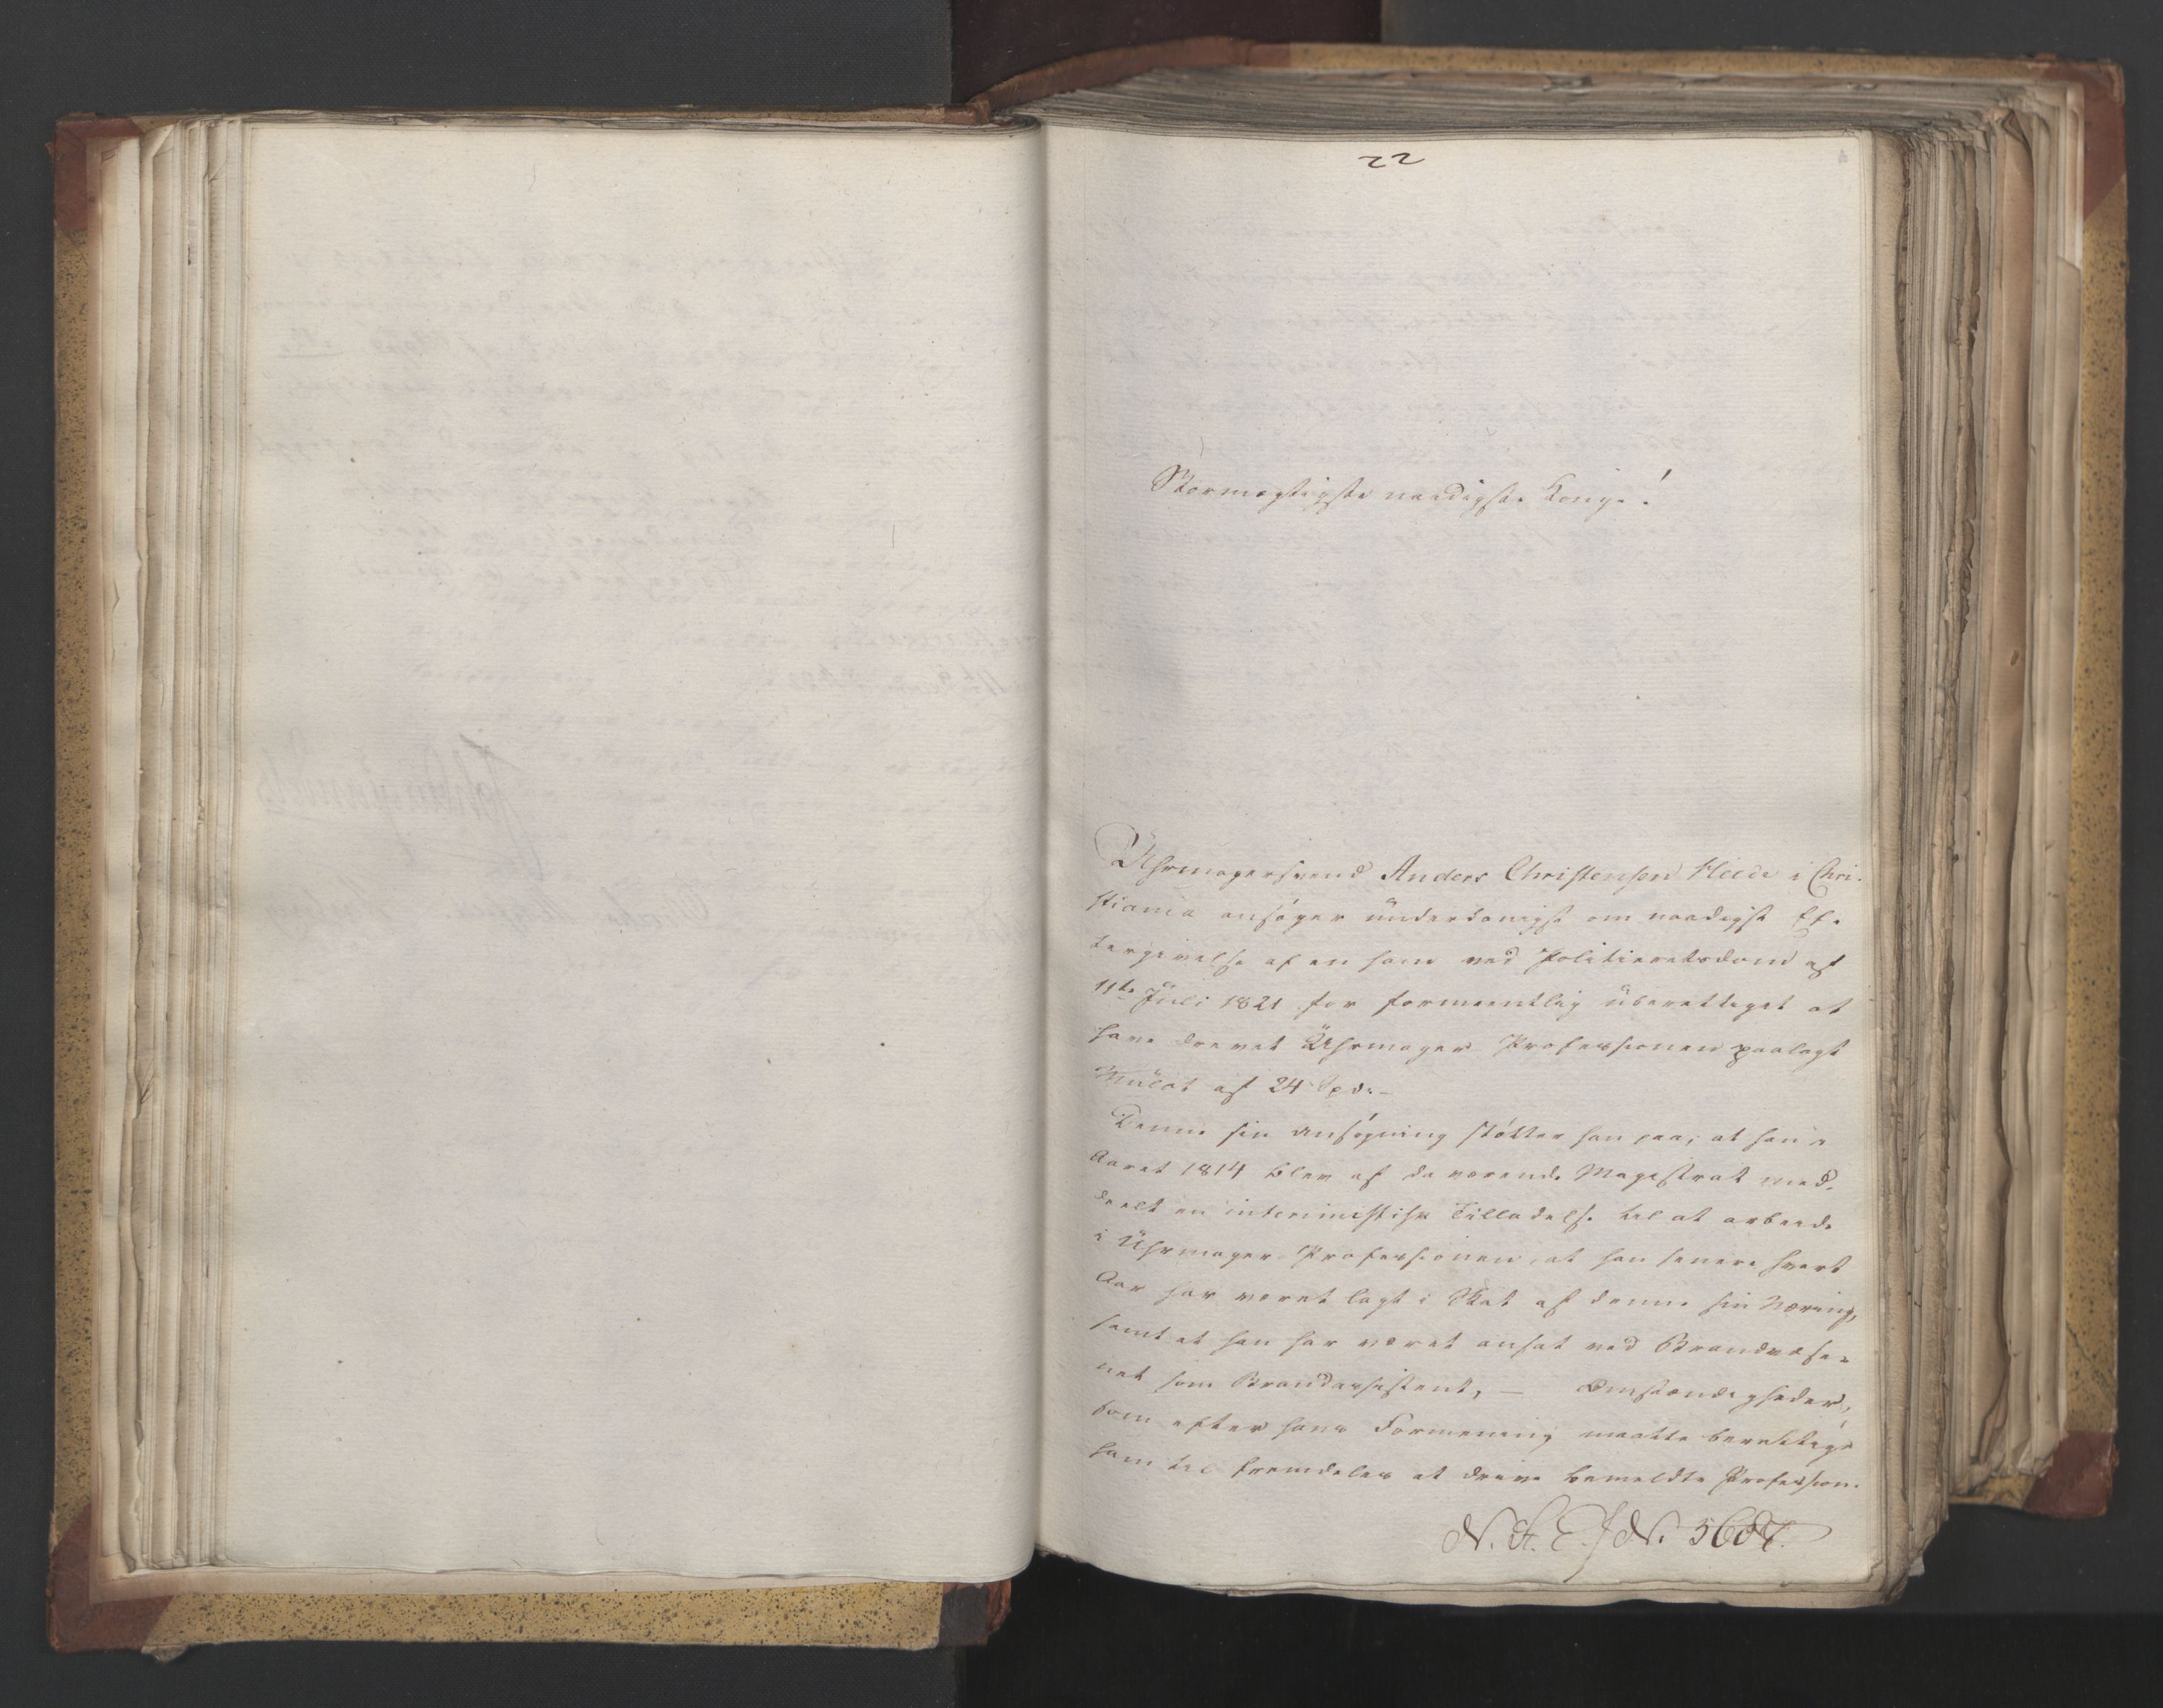 22
Stormægtigste naadigste Konge!
Uhrmagersvend Anders Christensen Heede i Chri-
stiania ansøger underdanigst om naadigst Ef-
tergivelse af en ham ved Politieretsdom af
11te Juli 1821 for formeentlig uberettiget at
have drevet Uhrmager Professionen paalagt
Mulct af 24 Spd.-
Denne sin Ansøgning støtter han paa, at han i
Aaret 1814 blev af daværende Magistrat med-
deelt en interimistisk Tilladelse til at arbeide
i Uhrmager-Professionen, at han senere hvert
Aar har været lagt i Skat af denne sin Næring,
samt at han har været ansat ved Brandvæse-
net som Brandassistent, — Omstændigheder,
som efter hans Formening maatte berettige
ham til fremdeles at drive bemeldte Profession.